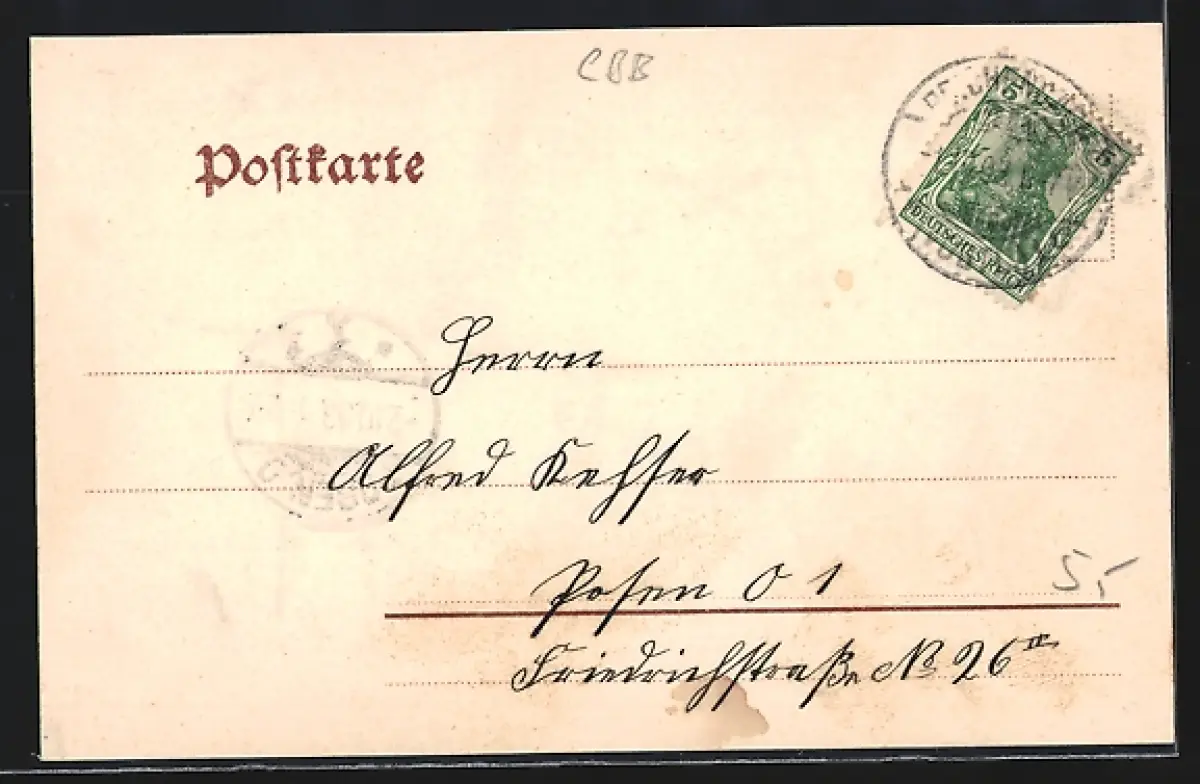 CBB
Postkarte
5 5
DEUTSCHES REICH
Herrn
Alfred Kehser
Posen O 1
5,-
Friedrichstraße No 26 II